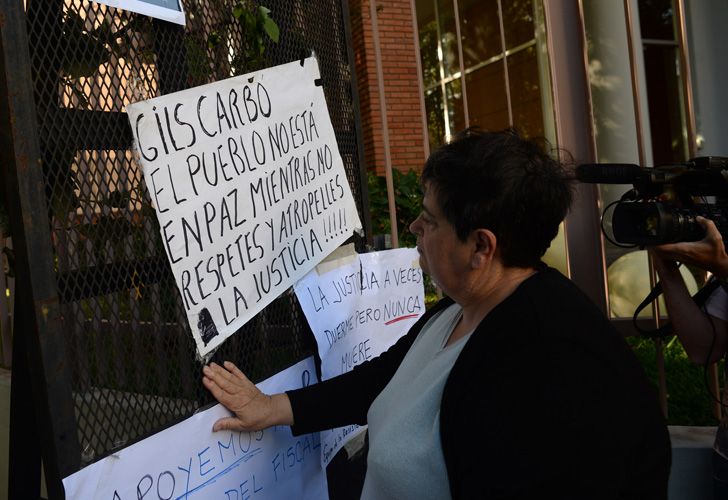 GILS CARBÓ
EL PUEBLO NO ESTÁ
EN PAZ MIENTRAS NO
RESPETES Y ATROPELLES
LA JUSTICIA !!!!!
LA JUSTICIA A VECES
DUERME PERO NUNCA
MUERE
APOYEMOS
DEL FISCAL